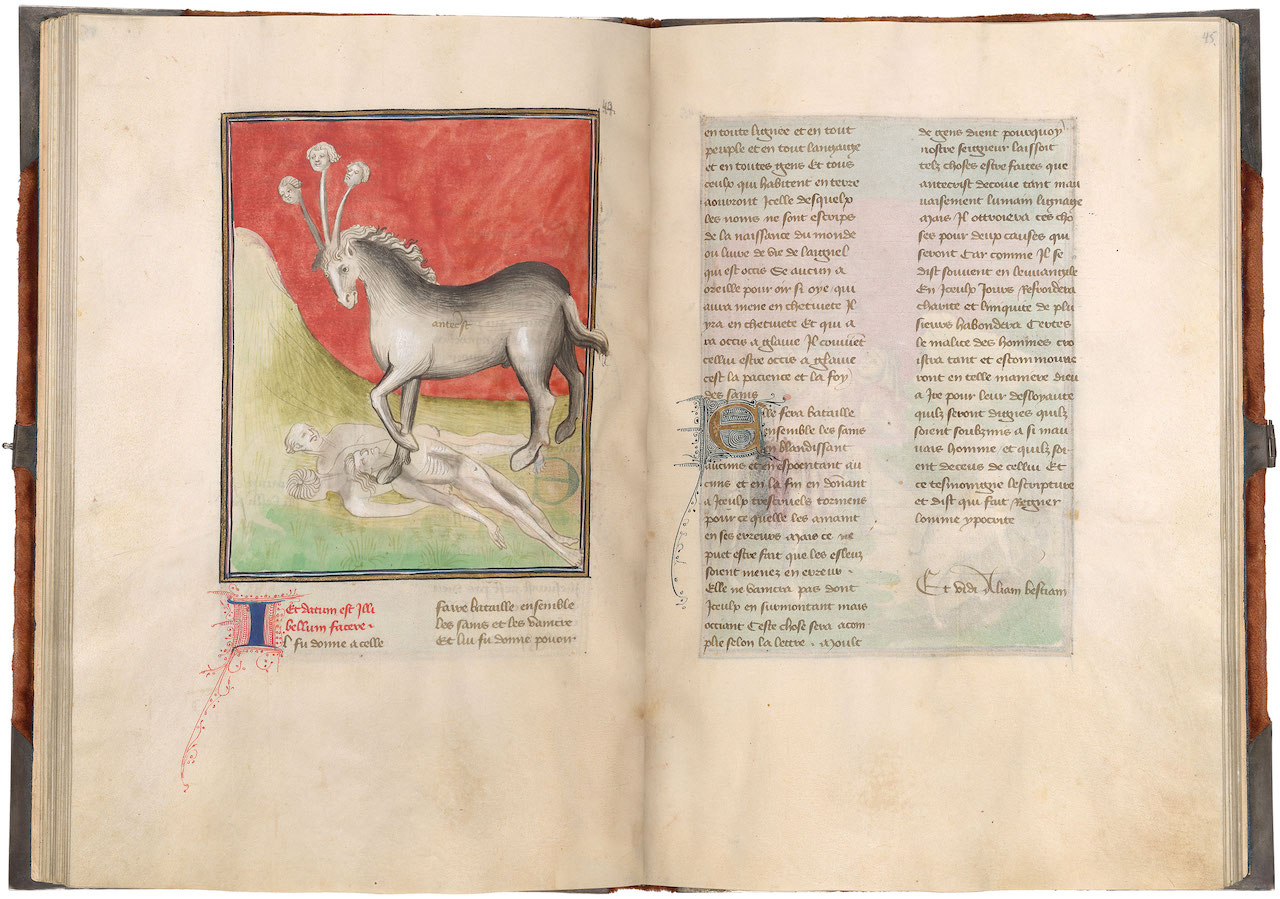 44.
antecrist
Et datum est Illi
bellum facere.
Il fu donne a celle
faire bataille ensemble
les sains et les vaincre
Et lui fu donne povoir
45.
en toute lignee et en tout
peuple et en tout langaige
et en toutes gens Et tous
ceulx qui habitent en terre
aouront Icelle desquelx
les noms ne sont escrips
de la naissance du monde
ou livre de vie de laignel
qui est occis Se aucun a
oreille pour oir si oye qui
aura mene en chetivete Il
yra en chetivete Et qui a
ra occis a glaive Il convient
cellui estre occis a glaive
cest la pacience et la foy
des sains
Elle fera bataille
ensemble les sains
en blandissant
aucuns et en espoentant au
cuns et en la fin en donnant
a Iceulx trescruels tormens
pour ce quelle les amaint
en ses erreurs Mais ce ne
puet estre fait que les esleuz
soient menez en erreur.
Elle ne vaincra pas dont
Iceulx en surmontant mais
occiant Ceste chose sera acom
plie selon la lettre. Moult
de gens dient pourquoy
nostre seigneur laissoit
telz choses estre faites que
antecrist decoive tant mau
vaisement lumain lignage
Mais Il ottroiera ces cho
ses pour deux causes qui
seront Car comme Il se
dist souvent en leuvangile
En Iceulx Jours Refroidera
charite et Iniquite de plu
sieurs habondera Certes
le malice des hommes cro
istra tant et escommouve
ront en telle maniere dieu
a Ire pour leur desloyaute
quilz seront dignes quilz
soient soubzmis a si mau
vais homme et quilz soi
ent deceus de cellui Et
ce tesmoigne lescripture
et dist qui fait Regner
lomme ypocrite
Et vidi Aliam bestiam